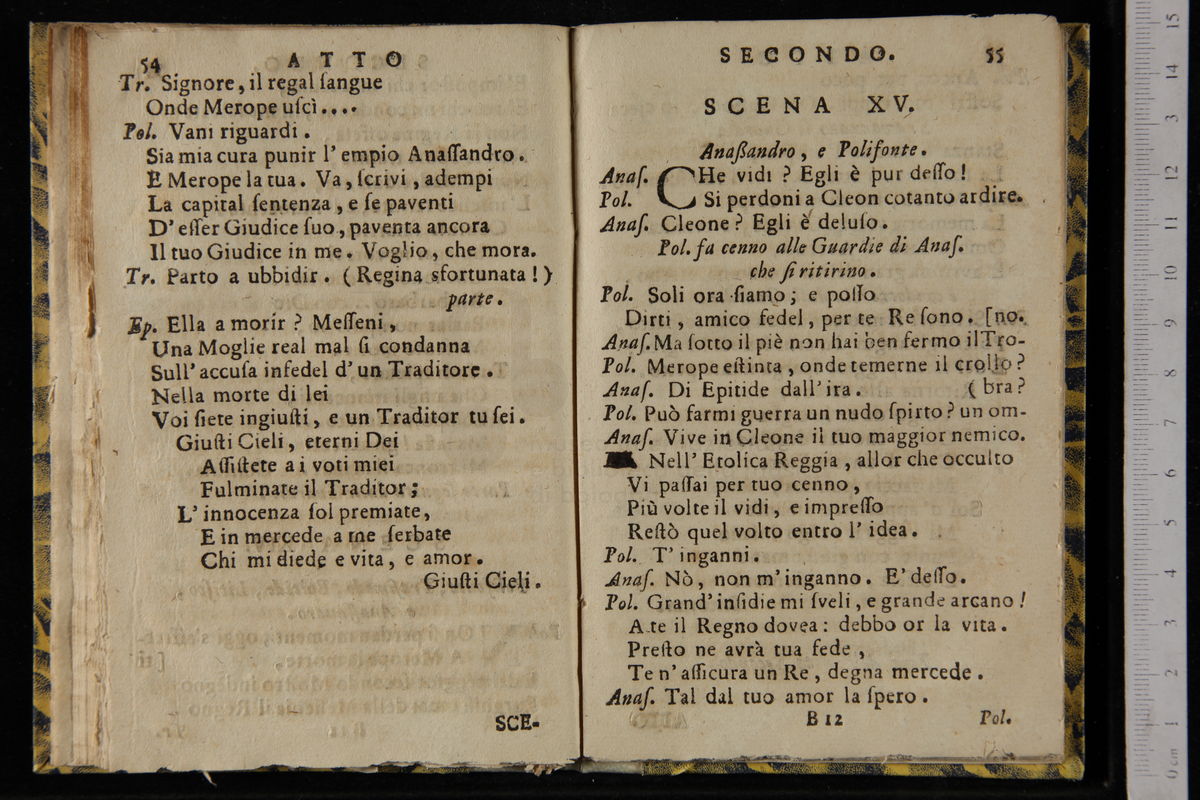 54 ATTO
Tr. Signore, il regal ſangue
Onde Merope uſcì....
Pol. Vani riguardi.
Sia mia cura punir l' empio Anaſſandro.
E Merope la tua. Va, ſcrivi, adempi
La capital ſentenza, e ſe paventi
D' eſſer Giudice ſuo, paventa ancora
Il tuo Giudice in me. Voglio, che mora.
Tr. Parto a ubbidir. (Regina sfortunata!)
parte.
Ep. Ella a morir? Meſſeni,
Una Moglie real mal ſi condanna
Sull' accuſa infedel d' un Traditore.
Nella morte di lei
Voi ſiete ingiuſti, e un Traditor tu ſei.
Giuſti Cieli, eterni Dei
Aſſiſtete a i voti miei
Fulminate il Traditor;
L' innocenza ſol premiate,
E in mercede a me ſerbate
Chi mi diede e vita, e amor.
Giuſti Cieli.
SCE-
SECONDO. 55
SCENA XV.
Anaßandro, e Polifonte.
Anaſ. CHe vidi? Egli è pur deſſo!
Pol. Si perdoni a Cleon cotanto ardire.
Anaſ. Cleone? Egli è deluſo.
Pol. fa cenno alle Guardie di Anaſ.
che ſi ritirino.
Pol. Soli ora ſiamo; e poſſo
Dirti, amico fedel, per te Re ſono. [no.
Anaſ. Ma ſotto il piè non hai ben fermo il Tro-
Pol. Merope eſtinta, onde temerne il crollo?
Anaſ. Di Epitide dall' ira. (bra?
Pol. Può farmi guerra un nudo ſpirto? un om-
Anaſ. Vive in Cleone il tuo maggior nemico.
Nell' Etolica Reggia, allor che occulto
Vi paſſai per tuo cenno,
Più volte il vidi, e impreſſo
Reſtò quel volto entro l' idea.
Pol. T' inganni.
Anaſ. Nò, non m' inganno. E' deſſo.
Pol. Grand' inſidie mi ſveli, e grande arcano!
A te il Regno dovea: debbo or la vita.
Preſto ne avrà tua fede,
Te n' aſſicura un Re, degna mercede.
Anaſ. Tal dal tuo amor la ſpero.
B 12 Pol.
15
14
13
12
11
10
9
8
7
6
5
4
3
2
1
0 cm